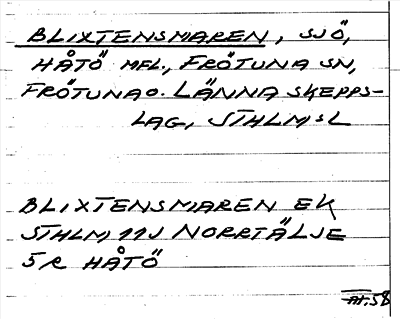 BLIXTENSMAREN, SJÖ,
HÅTÖ MFL., FRÖTUNA SN,
FRÖTUNA O. LÄNNA SKEPPS-
LAG, STHLMS L
BLIXTENSMAREN EK
STHLM 11J NORRTÄLJE
5R HÅTÖ